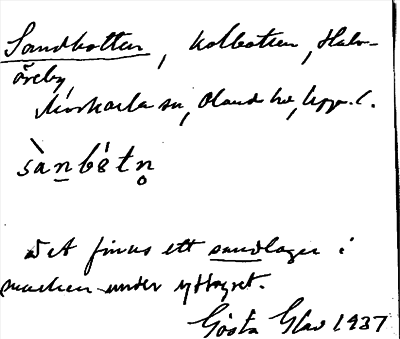 Sandbotten, kolbotten, Halv-
öreby,
Morkarla sn, Olands hd, Uppl.
sànbótn̥
Det finns ett sandlager i
marken under ytlagret.
Gösta Glas 1937